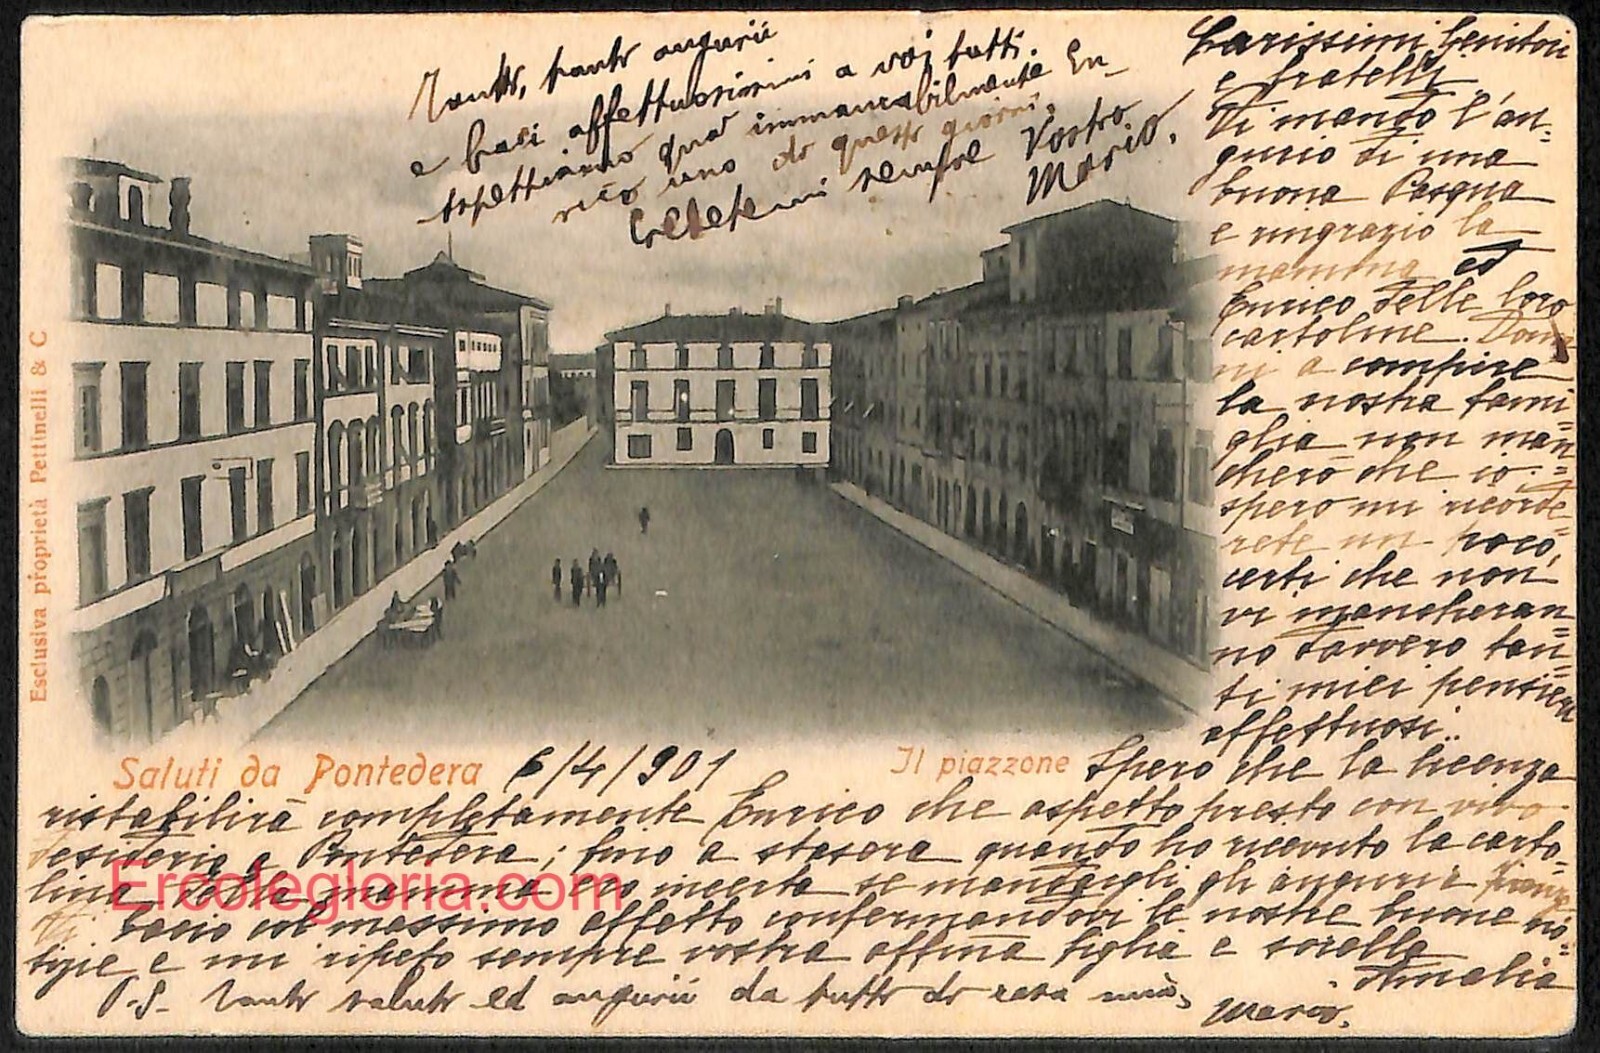 Tanti, tanti augurii
e baci affettuosissimi a voi tutti.
Aspettiamo qua immancabilmente En-
rico uno di questi giorni.
Credetemi sempre Vostro
Mario.
Carissimi Genitori
e fratelli
Vi mando l'au-
gurio di una
buona Pasqua
e ringrazio la
mamma ed
Enrico delle loro
cartoline. Doma-
ni a compire
la nostra fami
glia non man
cherò che io:
spero mi ricorde-
rete un poco,
certi che non
vi mancheran
no davvero tan-
ti miei pensieri
affettuosi..
Esclusiva proprietà Pettinelli & C
Saluti da Pontedera 6/4/901
Il piazzone
Spero che la licenza
ristabilirà completamente Enrico che aspetto presto con vivo
desiderio a Pontedera; fino a stasera quando ho ricevuto la carto-
lina della mamma ero incerta se mandargli gli augurii
Vi bacio col massimo affetto confermandovi le nostre buone no-
tizie e mi ripeto sempre vostra affma figlia e sorella
Amalia
P.S. Tanti saluti ed augurii da tutti di casa mia,
Mario.
Ercolegloria.com